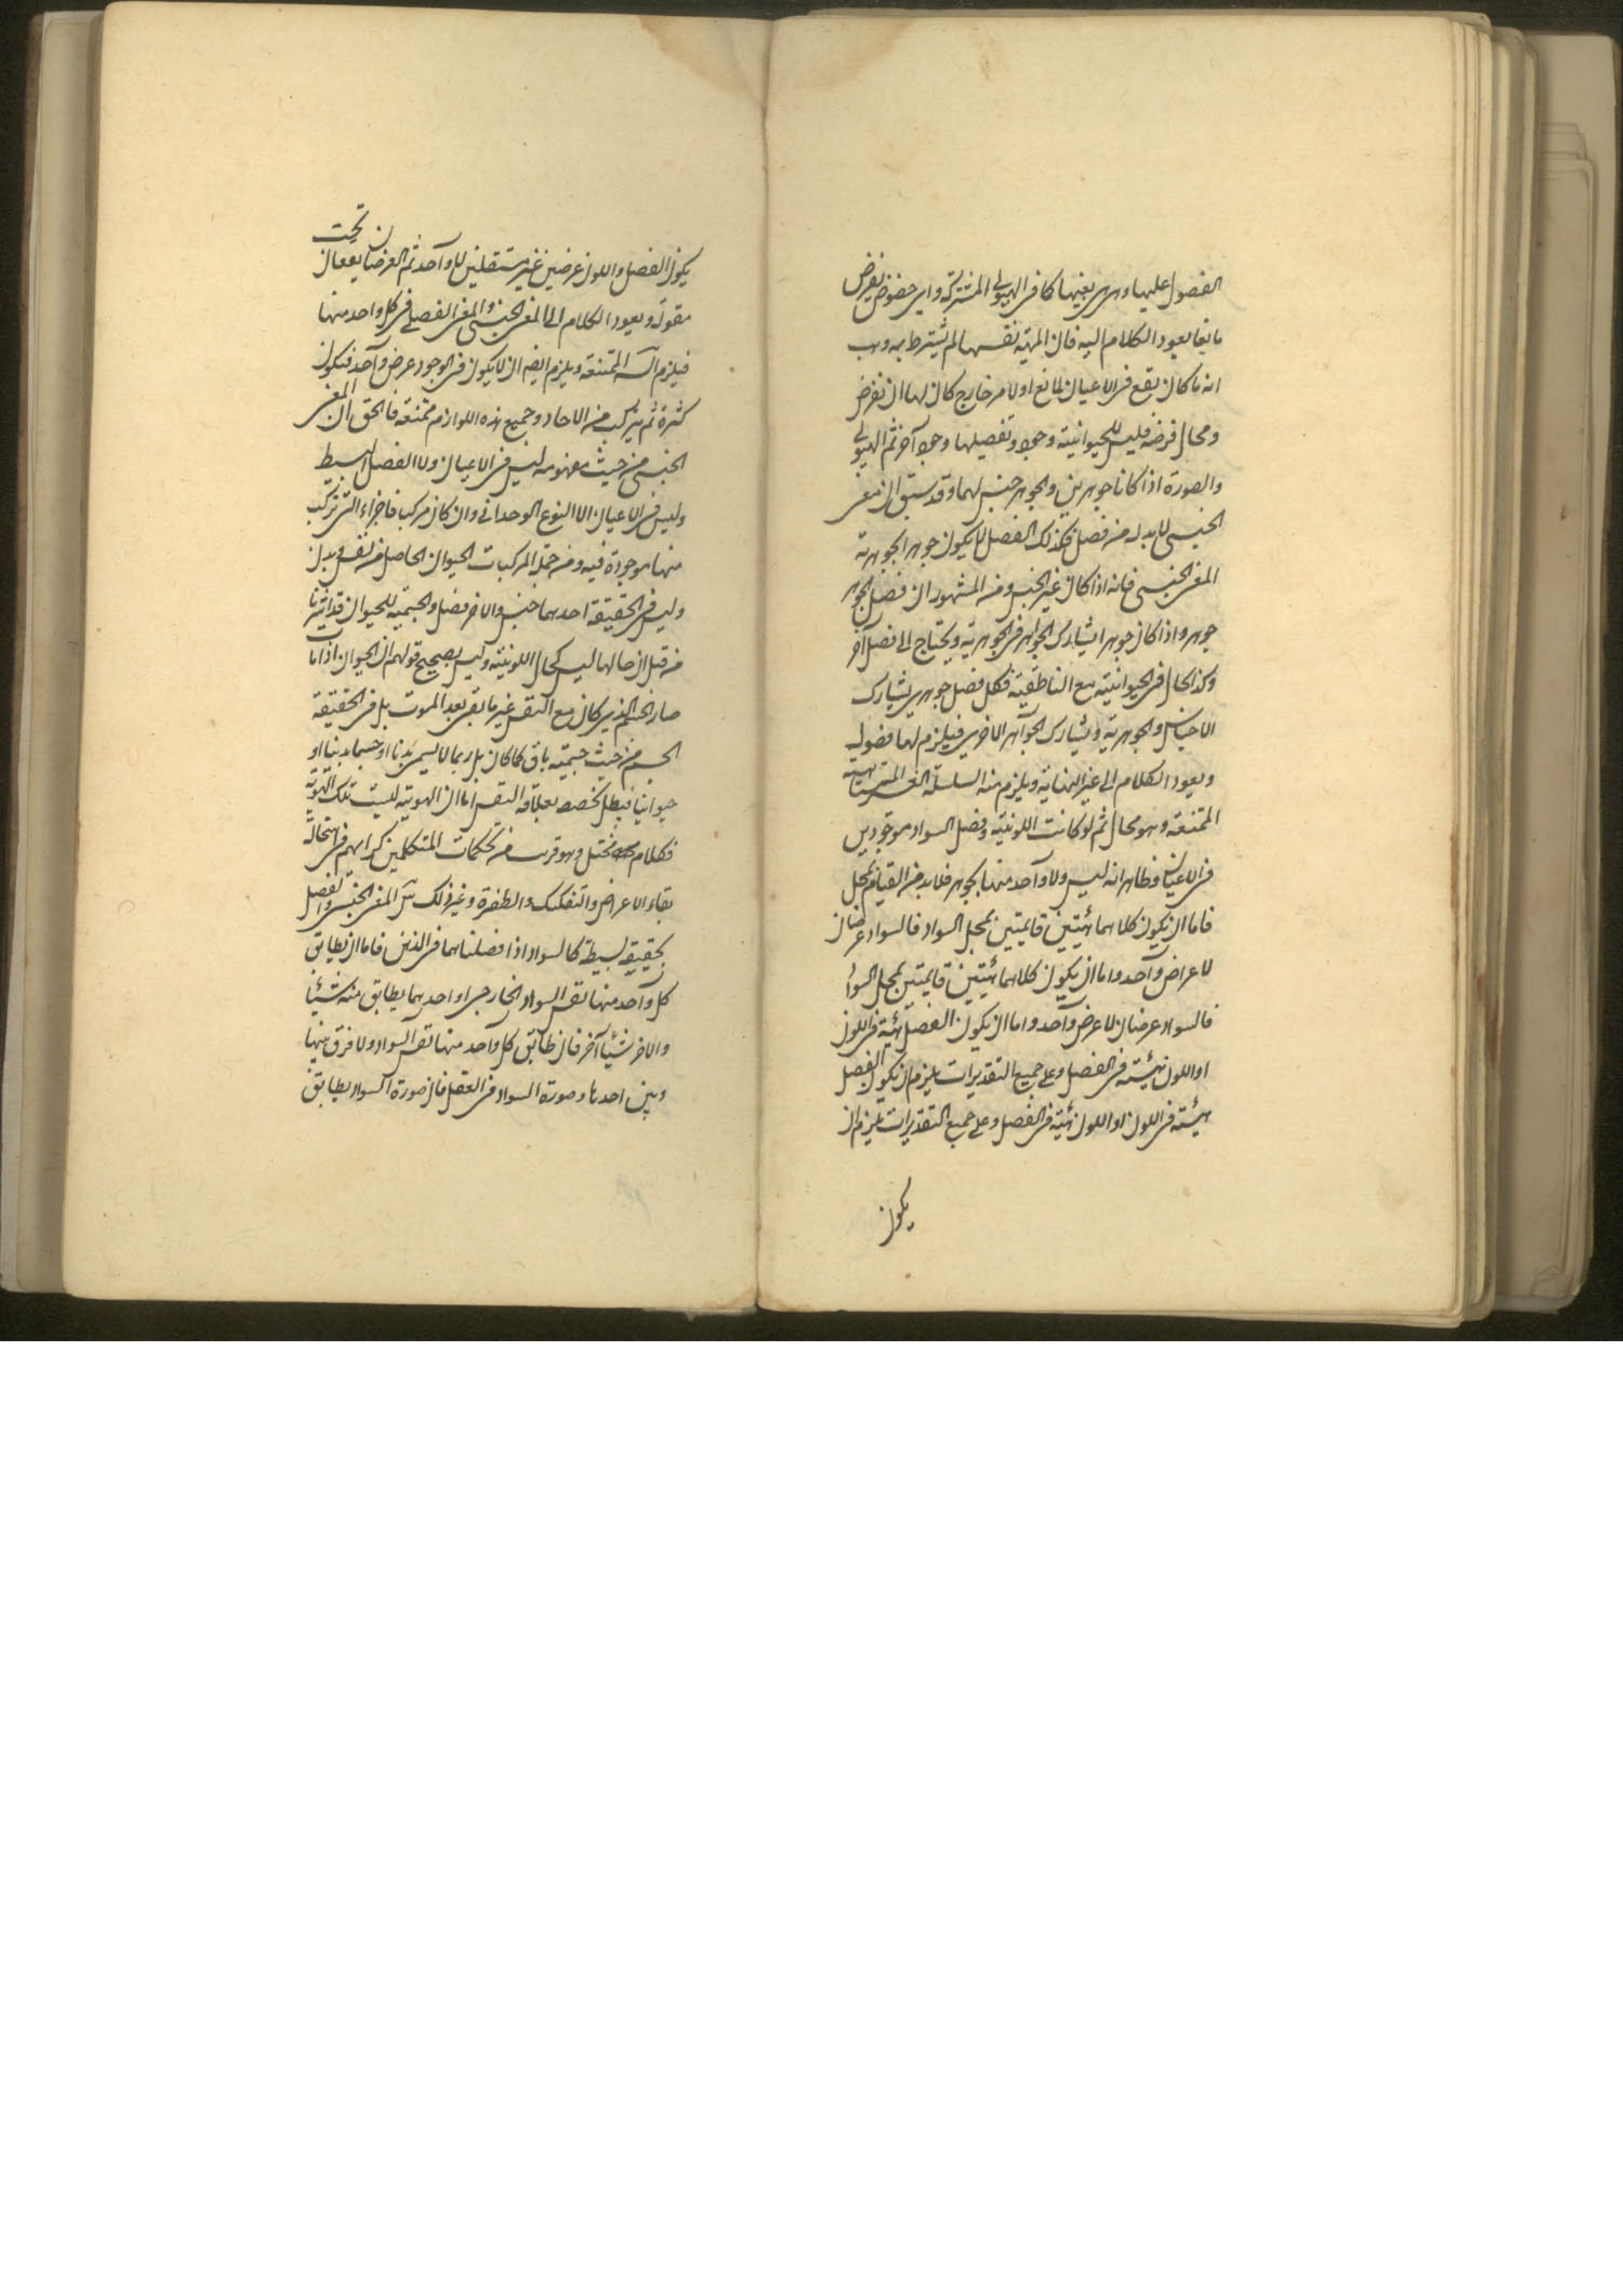 الفصول عليها وهي هي بعينها كما في الهيولى المشتركة واى خصوص يفرض
مانعا يعود الكلام اليه فان المهية نفسها لم يشترط به وهب
انه ما كان يقع في الاعيان لمانع او لامر خارج كان لها ان نفرض
ومحال فرضه فليس للحيوانية وجود وتفصيلها وجود آخر ثم الهيولى
والصورة اذا كانا جوهرين والجوهر جنس لهما وقد سبق ان معنى
الجنسى لا بد له من فصل فكذلك الفصل لا يكون جوهرا بجوهرية
المعنى الجنسى فانه اذا كان غير الجنس ومن المشهور ان فصل الجوهر
جوهر واذا كان جوهرا يشارك الجواهر في الجوهرية ويحتاج الى فصل آخر
وكذا الحال في الحيوانية مع الناطقية فكل فصل جوهرى يشارك
الاجناس والجوهرية ويشارك الجواهر الاخرى فيلزم لها فصول
ويعود الكلام الى غير النهاية ويلزم منه السلسلة الغير المتناهية
الممتنعة وهو محال ثم لو كانت اللونية وفصل السواد موجودين
في الاعيان فظاهر انه ليس ولا واحد منها بجوهر فلا بد من القيام بمحل
فاما ان يكون كلاهما هيئتين قايمتين بمحل السواد فالسواد عرضان
لا عرض واحد واما ان يكون كلاهما هيئتين قايمتين بمحل السواد
فالسواد عرضان لا عرض واحد واما ان يكون الفصل هيئة في اللون
او اللون هيئة في الفصل وعلى جميع التقديرات يلزم ان يكون الفصل
هيئة في اللون او اللون هيئة في الفصل وعلى جميع التقديرات يلزم ان
يكون
يكون الفصل واللون عرضين غير مستقلين لا واحد ثم العرضان يقعان تحت
مقولة ويعود الكلام الى المعنى الجنسى والمعنى الفصلى في كل واحد منها
فيلزم السلسلة الممتنعة ويلزم ايضا ان لا يكون في الوجود عرض واحد فتكون
كثرة ثم يتركب من الاحاد وجميع هذه اللوازم ممتنعة فالحق ان المعنى
الجنسى من حيث مفهومه ليس في الاعيان ولا الفصل البسيط
وليس في الاعيان الا النوع الوحدانى وان كان مركبا فاجزاء التى تركب
منها موجودة فيه ومن جملة المركبات الحيوان الحاصل من نفس وبدن
وليس في الحقيقة احدهما جنس والاخر فصل والجسمية للحيوان قد اشرنا
من قبل ان حالها ليس كحال اللونية وليس بصحيح قولهم ان الحيوان اذا مات
صار الجسم الذى كان مع النفس غير ما بقى بعد الموت بل في الحقيقة
الجسم من حيث جسميته باق كما كان بل ربما لا يسمى بدنا او جسما بدنيا او
حيوانيا فيبطل تخصصه بعلاقة النفس اما ان الهوية ليست تلك الهوية
فكلام مختل وهو قريب من تحكمات المتكلمين كرأيهم في استحالة
بقاء الاعراض والتفكيك والطفرة وغير ذلك المعنى الجنسى والفصل
بحقيقة بسيطة كالسواد اذا فصلناهما في الذهن فاما ان يطابق
كل واحد منها نفس السواد الخارجى او احدهما يطابق منه شيئا
والاخر شيئا آخر فان طابق كل واحد منها نفس السواد ولا فرق بينها
وبين احدها وصورة السواد في العقل فان صورة السواد يطابق